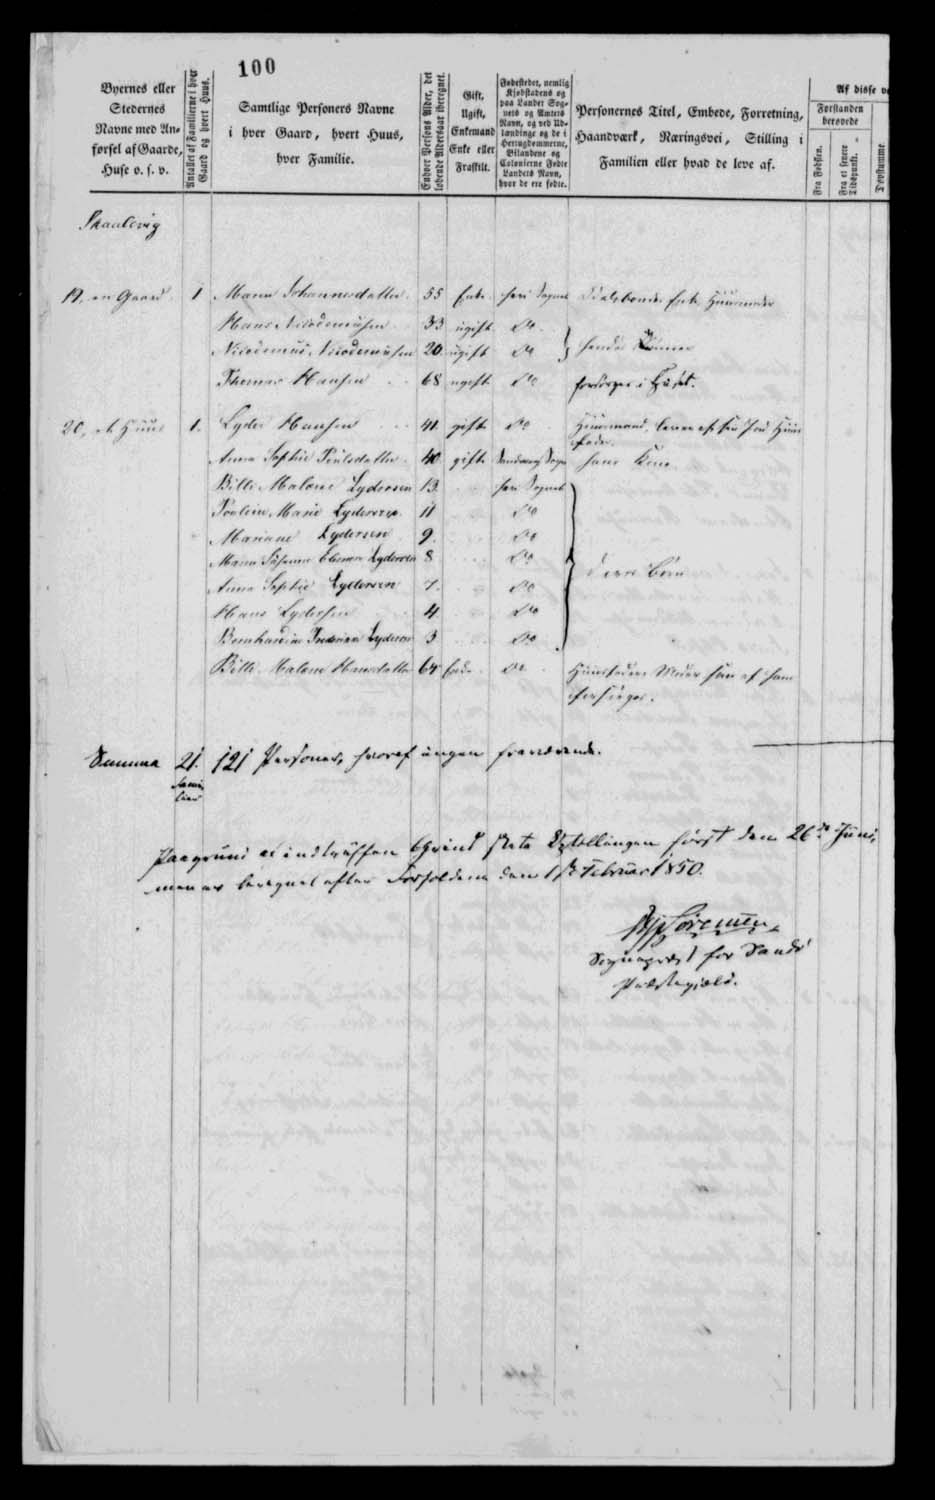 100
Byernes eller Stedernes Navne med Anførsel af Gaarde, Huse o. s. v.
Antallet af Familierne i hver Gaard og hvert Huus.
Samtlige Personers Navne i hver Gaard, hvert Huus, hver Familie.
Enhver Persons Alder, det løbende Aldersaar iberegnet.
Gift, Ugift, Enkemand Enke eller Fraskilt.
Fødestedet, nemlig Kjøbstadens og paa Landet Sognets og Amtets Navn, og ved Udlændinge og de i Hertugdømmerne, Bilandene og Colonierne Fødte Landets Navn, hvor de ere fødte.
Personernes Titel, Embede, Forretning, Haandværk, Næringsvei, Stilling i Familien eller hvad de leve af.
Af disse
Forstanden berøvede
Fra Fødslen.
Fra et senere Tidspunkt.
Døvstumme
Skaalevig
19, en Gaard 1 Maren Johannesdatter 55 Enke her i Sognet Enke
Hans Nicodemussen 33 ugift Do
Nicodemus Nicodemussen 20 ugift Do hendes Sønner
Thomas Hansen 68 ugift Do forsørges i Huset.
20, et Huus 1. Lyder Hansen 41 gift Do Huusmand, lever af sin Jord Huusfader.
Anna Sophie Poulsdatter 40 gift Sogn hans Kone
Bille Malene Lydersen 13 her i Sognet
Marie Lydersen 11 Do
Mariane Lydersen 9 Do
Maria Susanne Lydersen 8 Do deres Børn
Anna Sophie Lydersen 7 Do
Hans Lydersen 4 Do
Bernhardine Lydersen 3 Do
Bille Malene Hansdatter 64 Enke Do Huusfaders Moder som af ham
forsørges.
Summa 21. 121 Personer, hvoraf ingen fraværende.
Familier
Paagrund af indtruffen skete Optællingen først den 26de Juni,
men er beregnet efter Forholdene den 1ste Februar 1850.
Sørensen
Sognepræst for Sandø
Præstegjæld.